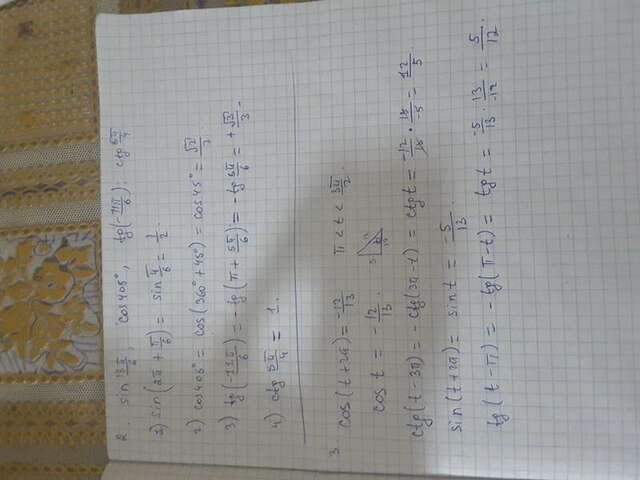 2. sin 13π/6, cos 405°, tg(-11π/6); ctg 5π/4
1) sin(2π + π/6) = sin π/6 = 1/2
2) cos 405° = cos(360° + 45°) = cos 45° = √2/2
= -tg(π + 5π/6) = -tg 5π/6 = +√3/3.
4) ctg 5π/4 = 1.
3. cos(t + 2π) = -12/13 π < t < 3π/2.
cos t = -12/13.
ctg(t - 3π) = -ctg(3π - t) = ctg t = -12/13 · 13/-5 = 12/5.
sin(t + 2π) = sin t = -5/13.
tg(t - π) = -tg(π - t) = tg t = -5/13 · 13/-12 = 5/12.